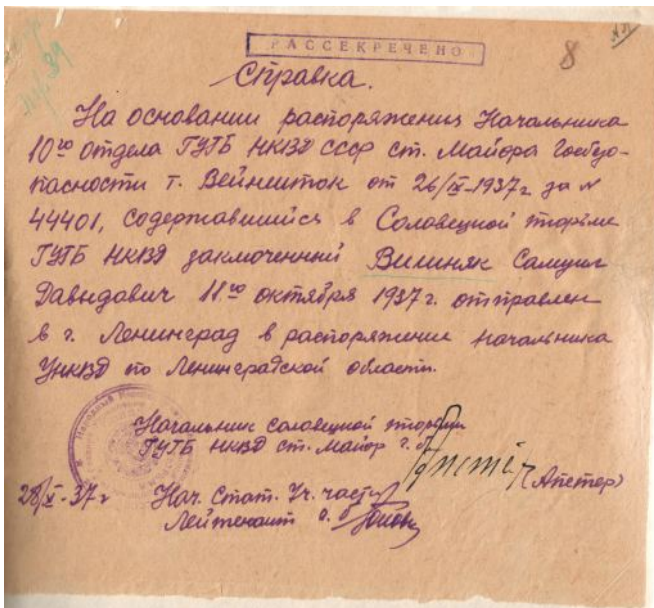 РАССЕКРЕЧЕНО
8
Справка.
На основании распоряжения Начальника
10го отдела ГУГБ НКВД СССР ст. Майора Госбезо-
пасности т. Вейншток от 26/IX-1937г за №
44401, содержавшийся в Соловецкой тюрьме
ГУГБ НКВД заключенный Вишняк Самуил
Давидович 11го октября 1937 г. отправлен
в г. Ленинград в распоряжение начальника
УНКВД по Ленинградской области.
Начальник Соловецкой тюрьмы
ГУГБ НКВД ст. Майор г. б.
(Апетер)
28/X-37г Нач. Стат. Уч. части
Лейтенант г. б.